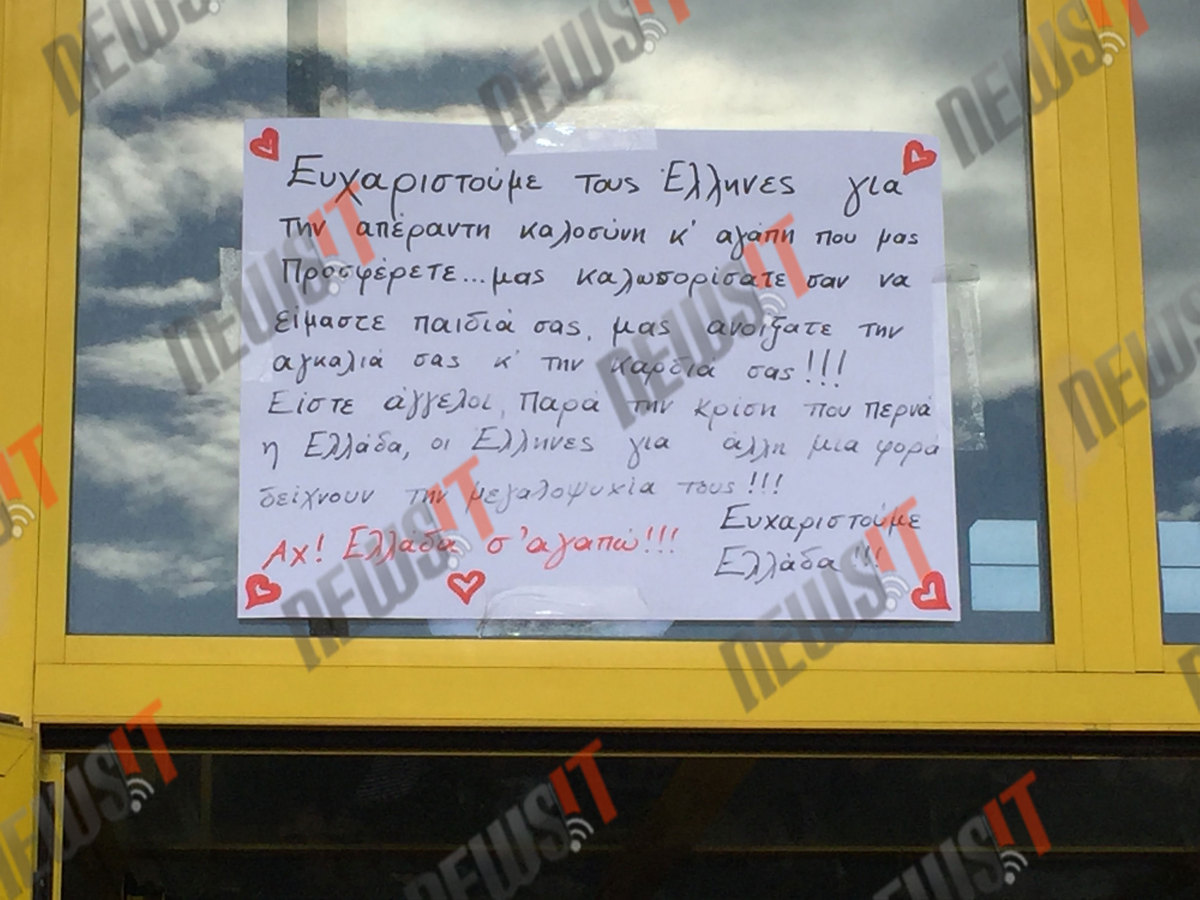 Ευχαριστούμε τους Έλληνες για
την απέραντη καλοσύνη κ' αγάπη που μας
Προσφέρετε...μας καλωσορίσατε σαν να
είμαστε παιδιά σας, μας ανοίξατε την
αγκαλιά σας κ' την καρδιά σας!!!
Είστε άγγελοι, Παρά την κρίση που περνά
η Ελλάδα, οι Έλληνες για άλλη μια φορά
δείχνουν την μεγαλοψυχία τους!!!
Αχ! Ελλάδα σ'αγαπώ!!!
Ευχαριστούμε
Ελλάδα!!!
NEWSIT
NEWSIT
NEWSIT
NEWSIT
NEWSIT
NEWSIT
NEWSIT
NEWSIT
NEWSIT
NEWSIT